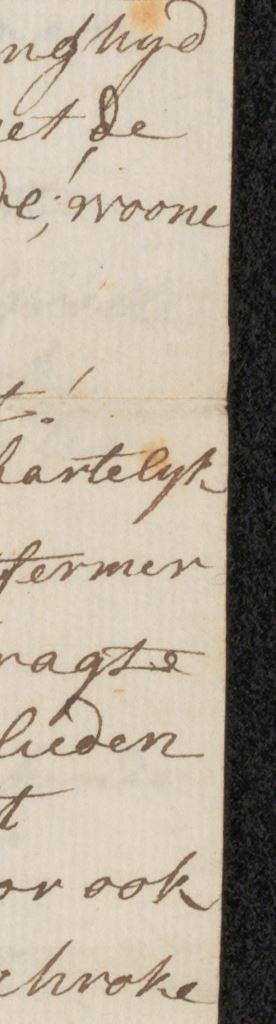 nghyd
et de
de; woone
t!
hartelyk
fermer
ragte
lieden
t
or ook
chroke